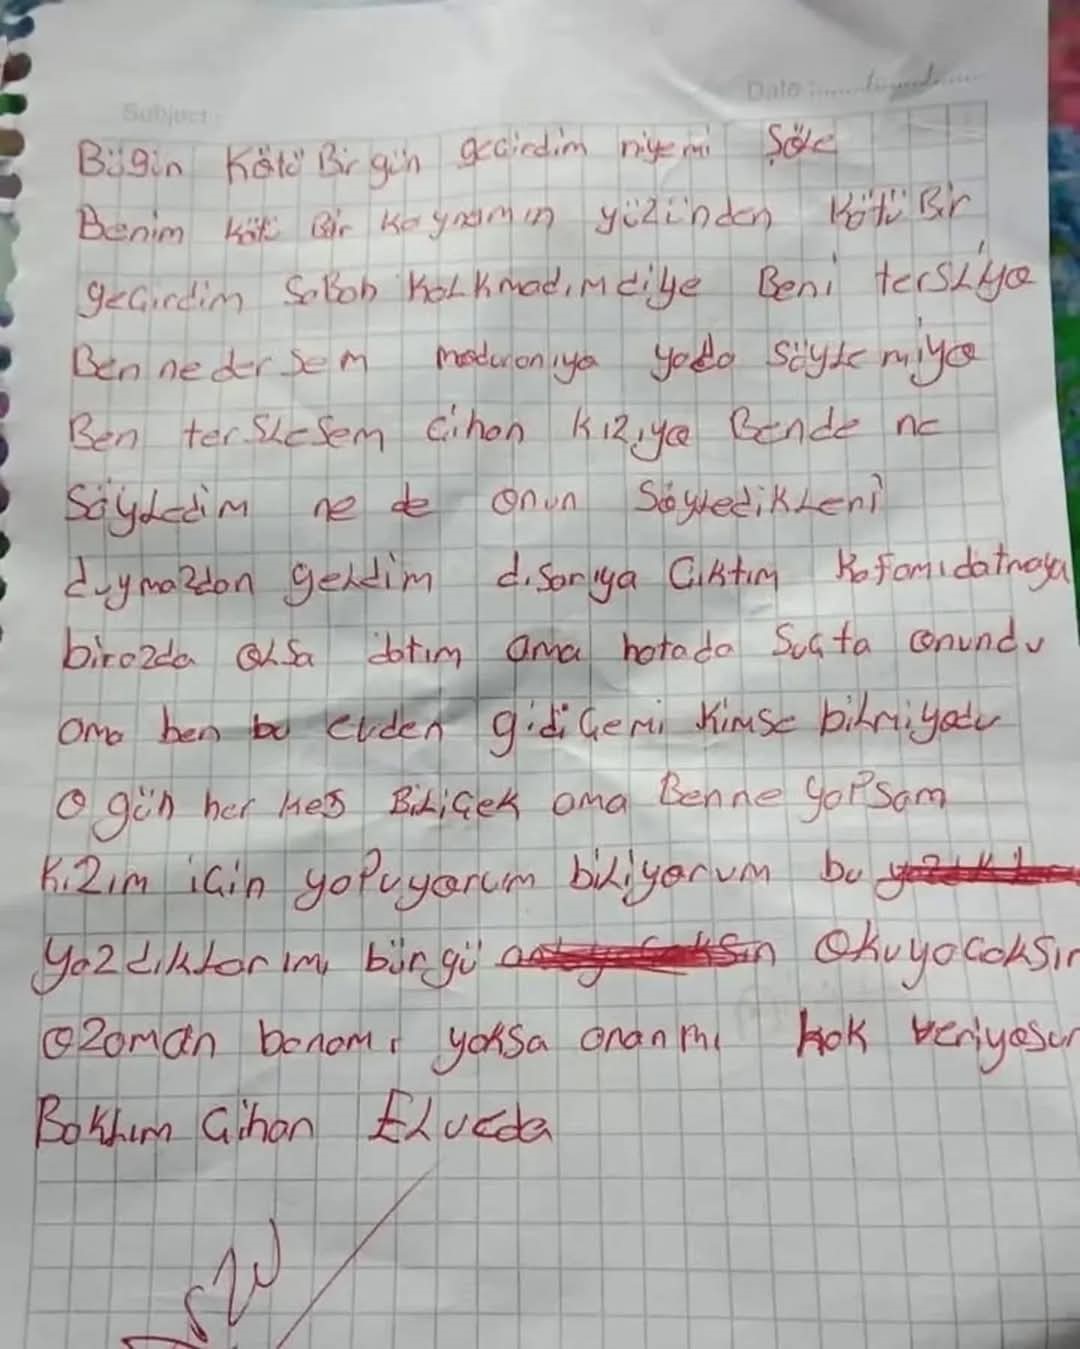 Subject:
Date:
Bügin Kötü Bir gün gecirdim niyemi Şöle
Benim kötü Bir Kaynamın yüzünden Kötü Bir
gecirdim Sabah Kalkmadım diye Beni tersliya
Ben ne dersem yada söylemiya
Ben terslesem Cihan kızıya Bende ne
Söyledim ne de onun Söyledikleni
duymazdan geldim dısarıya Cıktım Kafamıdatmaya
birazda olsa datım ama hatada Sucta onundu
ama ben bu evden gidiCemi Kimse bilmiyadu
O gün her kes BiliCek ama Benne yapsam
Kızım icin yapuyorum biliyorum bu
yazdıklarımı bürgü Okuyacaksın
Ozaman banamı yoksa onanmı hak veriyosun
Baklım Cihan Elveda